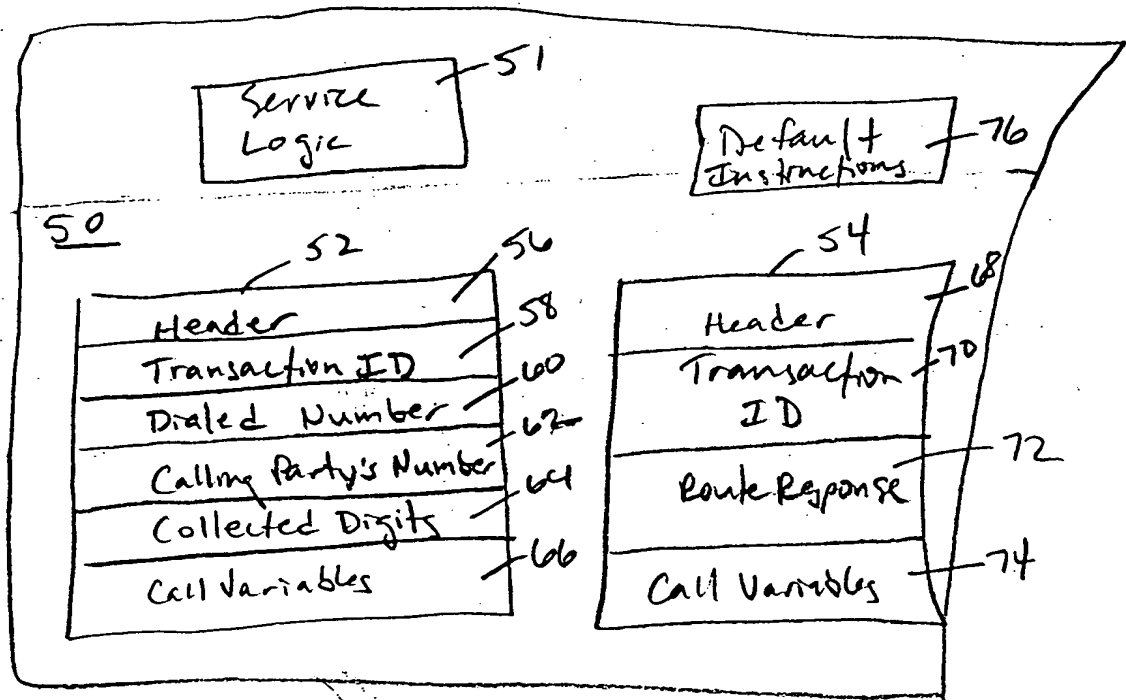 Service
Logic
51
Default
Instructions
76
50
52
Header
56
Transaction ID
58
Dialed Number
60
Calling Party's Number
62
Collected Digits
64
Call Variables
66
54
Header
68
Transaction
ID
70
Route Response
72
Call Variables
74